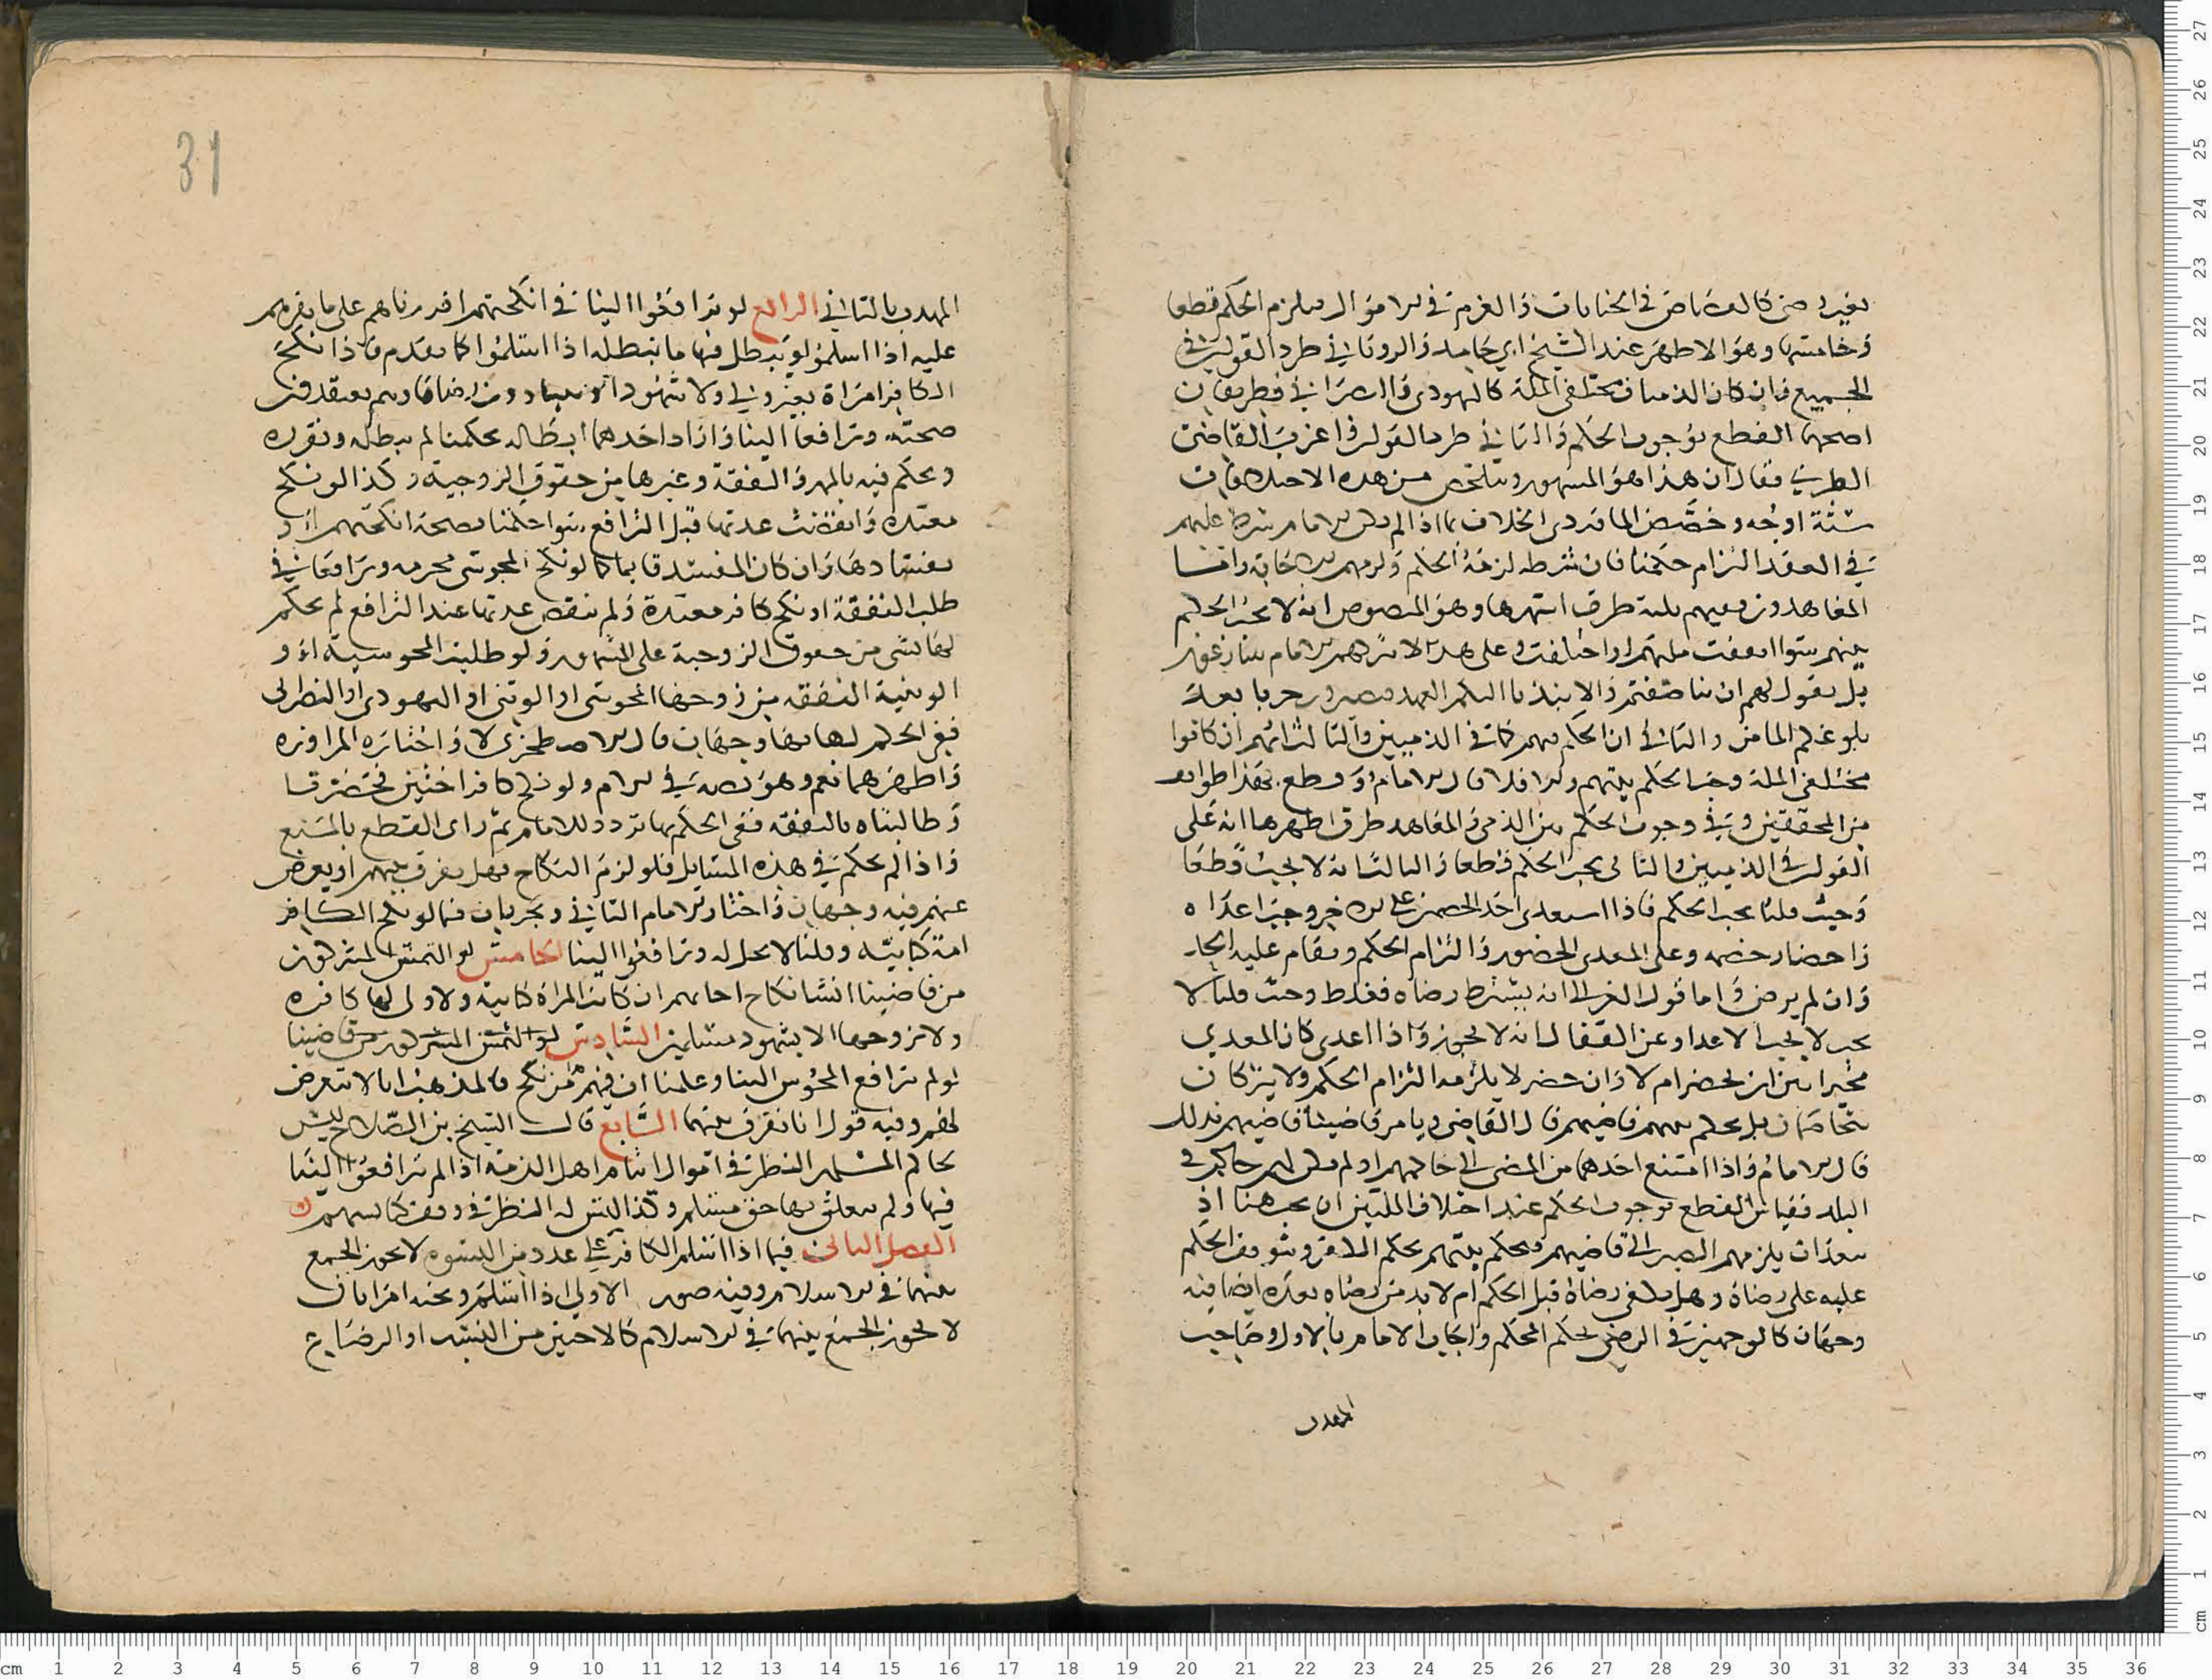 وخامستها وهو الاظهر عند الشيخ ابي حامد والروياني طرد القولين في
الجميع فان كان الذميان مختلفي الملة كاليهودي والنصراني فطريقان
اصحها القطع بوجوب الحكم والثاني طرد القولين واغرب القاضي
الطبري فقال ان هذا هو المشهور وتلخص من هذه الاختلافات
ستة اوجه وخصص الماوردي الخلاف بما اذا لم يكن الامام شرط عليهم
في العقد التزام حكمنا فان شرطه لزمه الحكم ولزمهم الاجابة واما
المعاهدون ففيهم ثلثة طرق اشهرها وهو المنصوص انه لا يجب الحكم
بينهم سوا اتفقت ملتهم او اختلفت وعلى هذا لا
بل يقول لهم ان
والثاني ان الحكم بينهم كما في الذميين والثالث انهم ان كانوا
مختلفي الملة وجب الحكم بينهم والا فلا قال الامام وقطع بهذا طوائف
من المحققين وفي وجوب الحكم بين الذمي والمعاهد طرق اظهرها انه على
القولين في الذميين والثاني يجب الحكم قطعا والثالث انه لا يجب قطعا
وحيث قلنا يجب الحكم فاذا استعدى احد الخصمين على الاخر وجب اعداه
واحضار خصمه وعلى المعدى الحضور والتزام الحكم ويقام عليه الحد
وان لم يرض واما قول الغزالي انه يشترط رضاه فغلط وحيث قلنا لا
يجب لا يجب الاعدا وعن القفال انه لا يجوز واذا اعدى كان المعدي
مخيرا بين ان يحضر ام لا وان حضر لا يلزمه التزام الحكم ولا يتركان
يتخاصمان بل يحكم بينهم قاضيهم قال القاضي ويامر قاضينا قاضيهم بذلك
قال الامام واذا امتنع احدهما من المضي الى حاكمهم او لم يكن لهم حاكم في
البلد فقياس القطع بوجوب الحكم عند اختلاف الملتين ان يجب هنا اذ
يلزمهم المصير الى قاضيهم ويحكم بينهم بحكم الكافر ويتوقف الحكم
عليه على رضاه وهل يكفي رضاه قبل الحكم ام لا بد من رضاه بعده ايضا فيه
وجهان كالوجهين في الرضى بحكم المحكم واجاب الامام بالاول وصاحب
المهدب
31
المهدب بالثاني الرابع لو ترافعوا الينا في انكحتهم اقررناهم على ما نقرهم
عليه اذا اسلموا ونبطل منها ما نبطله اذا اسلموا كما تقدم فاذا نكح
الكافر امراة بغير ولي ولا شهود او دون رضاها وهم يعتقدون
صحته وترافعا الينا وارادا احدهما ابطاله بحكمنا لم نبطله ونقرره
ونحكم فيه بالمهر والنفقة وغيرها من حقوق الزوجية وكذا لو نكح
معتدة وانقضت عدتها قبل الترافع سوا حكمنا بصحة انكحتهم او
بفسادها وان كان المفسد قايما كما لو نكح المجوسي محرمه وترافعا في
طلب النفقة او نكح كافر معتدة ولم تنقض عدتها عند الترافع لم نحكم
لها بشي من حقوق الزوجية على المشهور ولو طلبت المجوسية او
الوثنية النفقة من زوجها المجوسي او الوثني او اليهودي او النصراني
ففي الحكم لها بها وجهان قال الاصطخري لا واختاره المراوزة
واظهرهما نعم وهو نصه في الام ولو نكح كافر اختين فحضرتا
وطالبتاه بالنفقة ففي الحكم بها تردد للامام ثم راى القطع بالمنع
واذا لم نحكم في هذه المسايل فلو لزم النكاح فهل نفرق بينهم او نعرض
عنهم فيه وجهان واختار الامام الثاني ويجريان فيما لو نكح الكافر
امة كتابية وقلنا لا تحل له وترافعوا الينا الخامس لو التمس المشركون
من قاضينا انشا نكاح اجابهم ان كانت المراة كتابية ولا ولي لها كافر
ولا نزوجها الا بشهود مسلمين السادس لو التمس المشركون من قاضينا
لو لم يترافع المجوس الينا وعلمنا ان فيهم من نكح فالمذهب انا لا نتعرض
لهم وفيه قول انا نفرق بينهما السابع قال الشيخ بن الصلاح ليس
لحاكم المسلمين النظر في اموال ايتام اهل الذمة اذا لم يترافعوا الينا
فيها ولم يتعلق بها حق مسلم وكذا ليس له النظر في وقف كنائسهم
الفصل الثاني فيما اذا اسلم الكافر على عدد من النسوة لا يجوز الجمع
بينها في الاسلام وفيه صور الاولى اذا اسلم وتحته امراتان
لا يجوز الجمع بينهما في الاسلام كالاختين من النسب او الرضاع